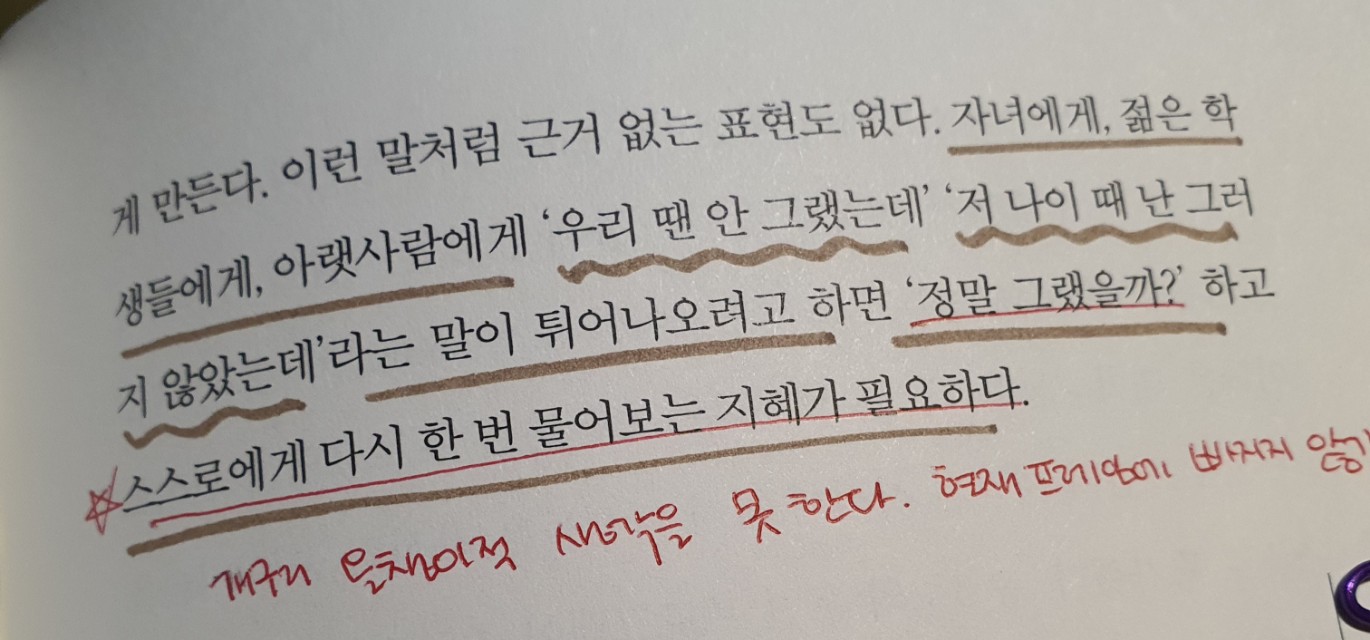 게 만든다. 이런 말처럼 근거 없는 표현도 없다. 자녀에게, 젊은 학
생들에게, 아랫사람에게 ‘우리 땐 안 그랬는데’ ‘저 나이 때 난 그러
지 않았는데’라는 말이 튀어나오려고 하면 ‘정말 그랬을까?’ 하고
스스로에게 다시 한 번 물어보는 지혜가 필요하다.
개구리 올챙이적 생각을 못 한다. 현재 프레임에 빠지지 않기